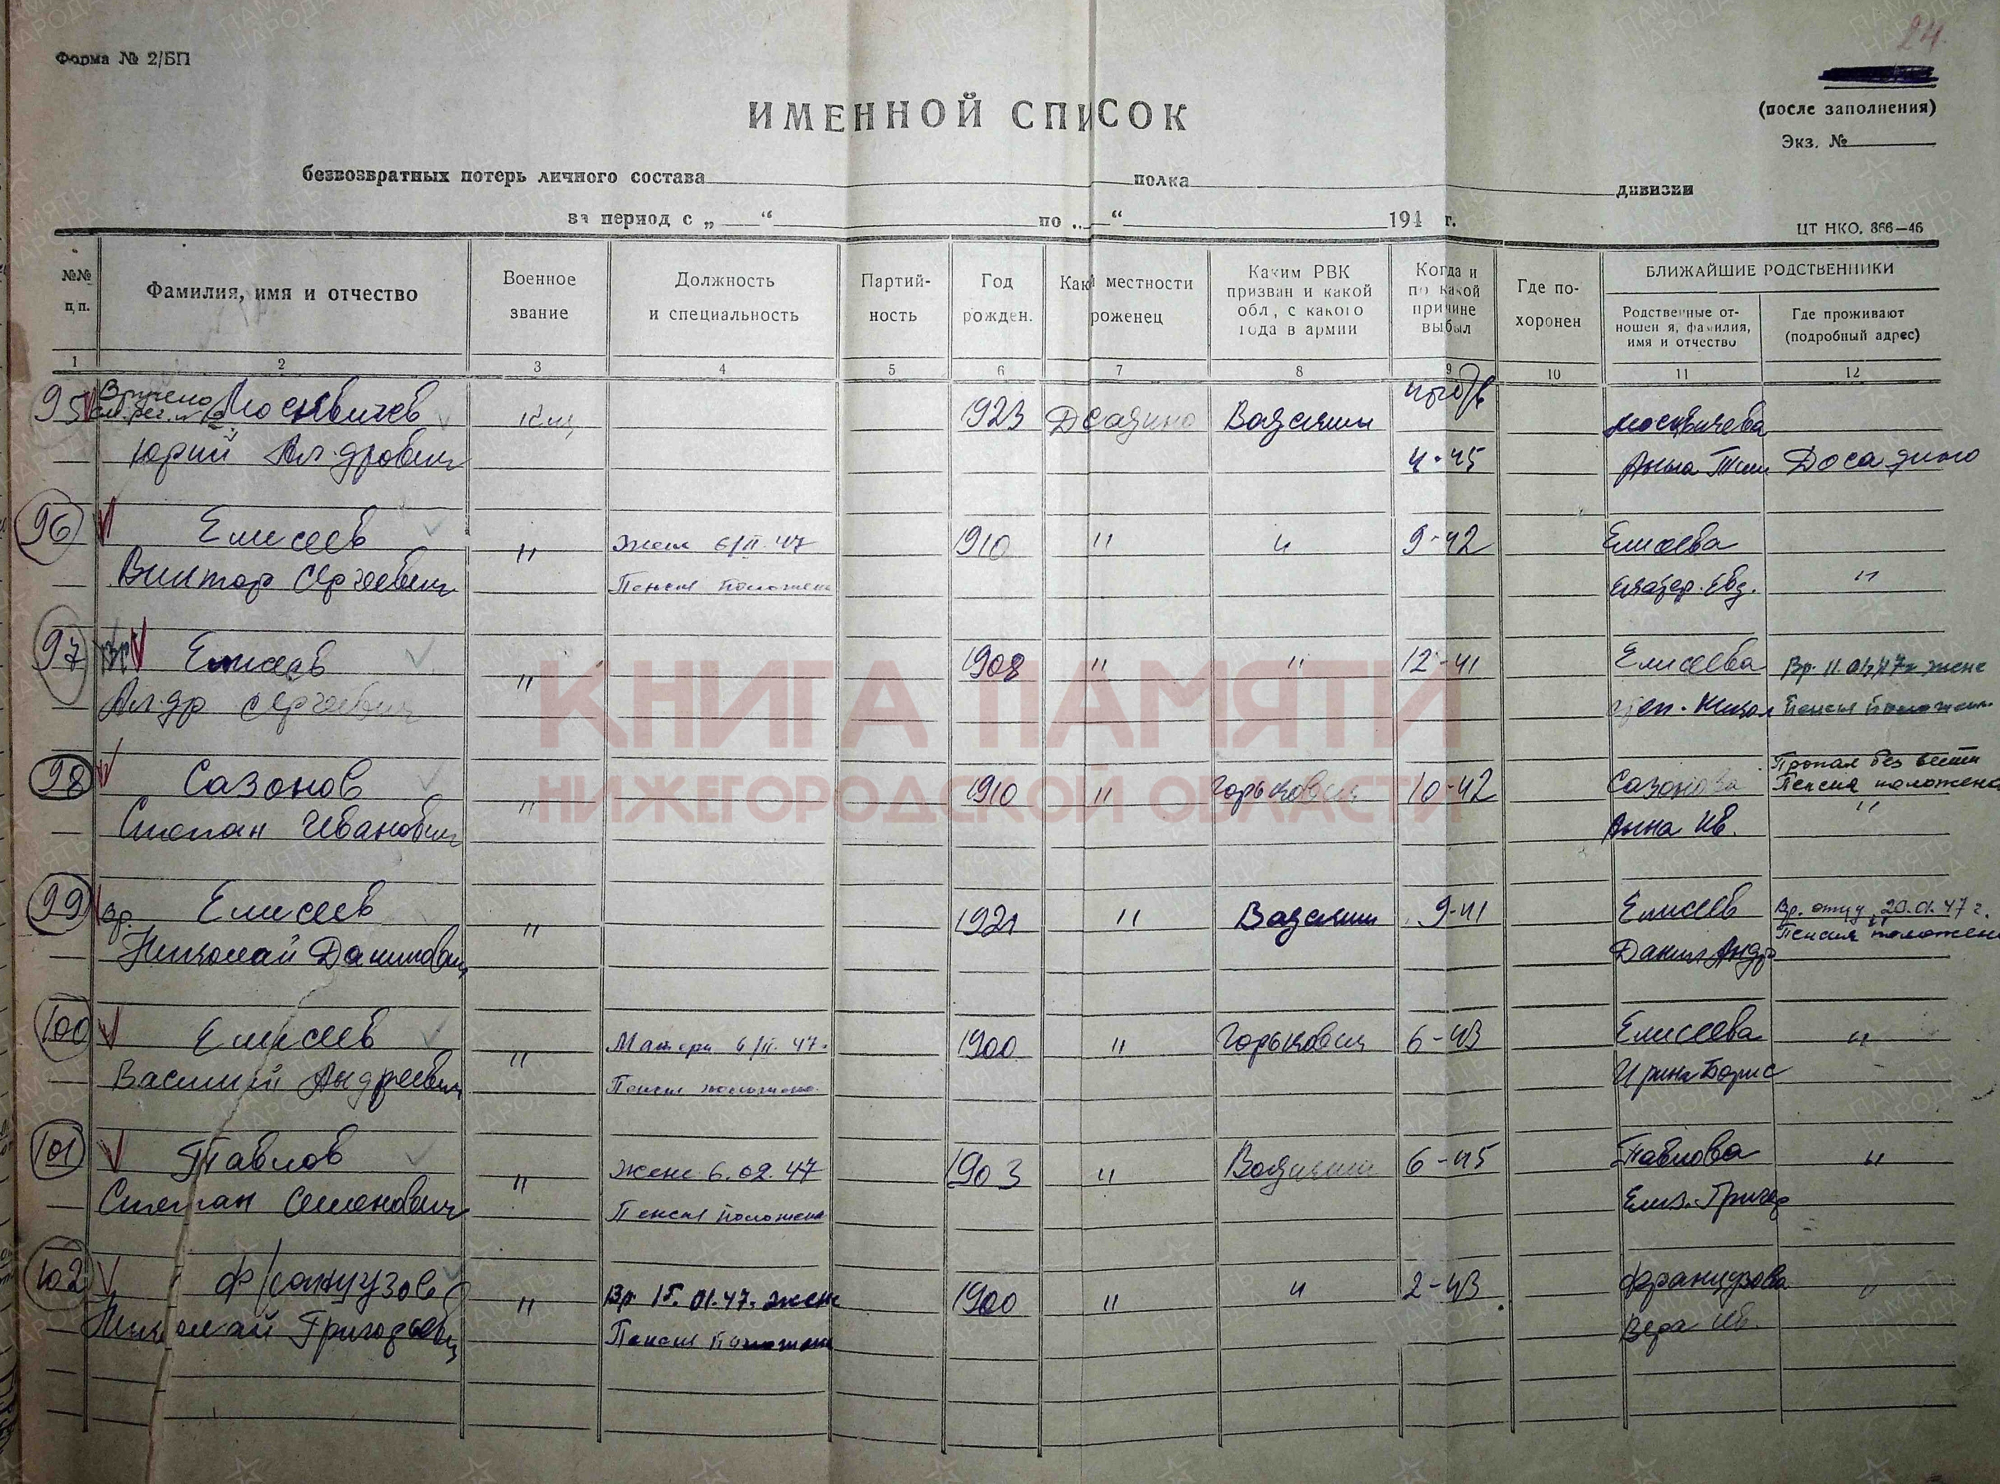 24.
Форма № 2/БП
(после заполнения)
Экз. №
ИМЕННОЙ СПИСОК
безвозвратных потерь личного состава полка дивизии
за период с „ “ по „ “ 194 г.
ЦТ НКО. 866—46
№№ п, п.
Фамилия, имя и отчество
Военное звание
Должность и специальность
Партий-ность
Год рожден.
Какой местности роженец
Каким РВК призван и какой обл, с какого года в армии
Когда и по какой причине выбыл
Где по-хоронен
БЛИЖАЙШИЕ РОДСТВЕННИКИ
Родственные от-ношен я, фамилия, имя и отчество
Где проживают (подробный адрес)
1 2 3 4 5 6 7 8 9 10 11 12
95 Вручено Москвичев 1923 Москвичева
Юрий Ал-дрович 4-45 Анна Досадино
96 Елисеев " Жене 6/II.47 1910 " " 9-42 Елисеева
Виктор Сергеевич Пенсия положена "
97 Вр Елисеев " 1908 " " 12-41 Елисеева Вр. 11.01.47г жене
Ал-др Сергеевич Пенсия положена
98 Сазонов " 1910 " Горьковск 10-42 Сазонова Пропал без вести
Пенсия положена
Степан Иванович Анна Ив. "
99 Вр. Елисеев " 1921 " 9-41 Елисеев Вр. отцу 20.01.47 г.
Николай Данилович Данил Андр Пенсия положена
100 Елисеев " Матери 6/II.47. 1900 " Горьковск 6-43 Елисеева "
Василий Андреевич Пенсия положена Ирина Борис
101 Павлов " Жене 6.02.47 1903 " 6-45 Павлова "
Степан Семенович Пенсия положена Елиз. Григор
102 Французов " Вр 15.01.47. жене 1900 " " 2-43 Французова "
Николай Григорьевич Пенсия положена Вера Ив.
КНИГА ПАМЯТИ
НИЖЕГОРОДСКОЙ ОБЛАСТИ